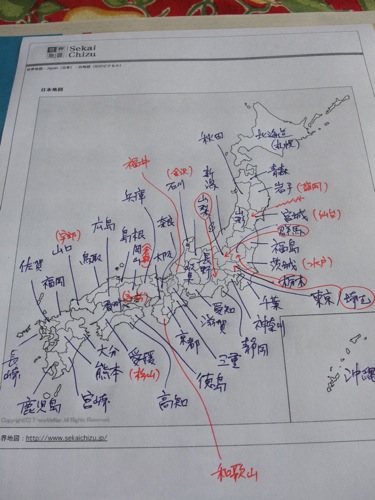 Sekai
Chizu
日本地図
秋田
北海道
(札幌)
青森
岩手
(盛岡)
福井
(金沢)
石川
新潟
山梨
山形
宮城
(仙台)
兵庫
奈良
群馬
広島
島根
福島
山口
岡山
大阪
長野
茨城
(水戸)
佐賀
鳥取
栃木
福岡
東京
埼玉
千葉
愛知
神奈川
滋賀
静岡
京都
三重
長崎
大分
愛媛
徳島
熊本
(松山)
沖縄
鹿児島
宮崎
高知
界地図：http://www.sekaichizu.jp/
和歌山